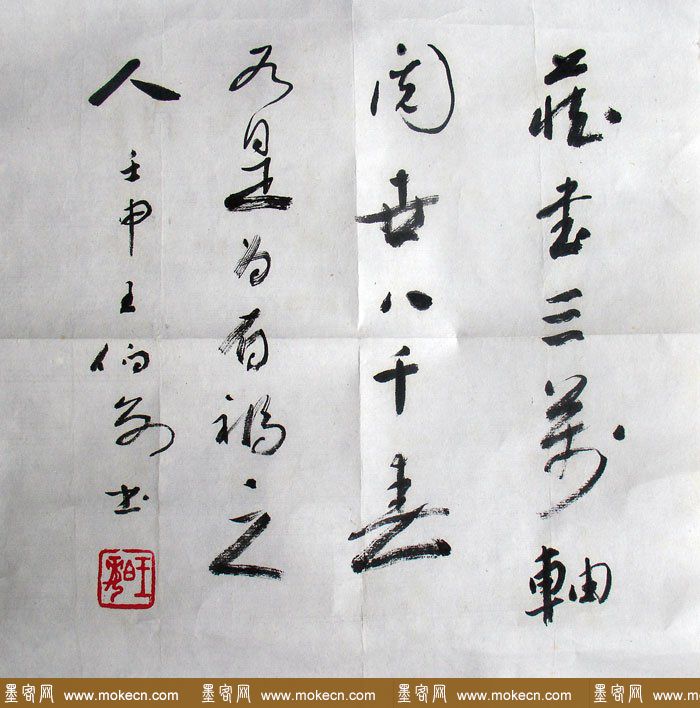 藏書三萬軸
閱世八千春
是為有福之
人 壬申王伯敏书
墨客网 www.mokecn.com 墨客网 www.mokecn.com 墨客网 www.mokecn.com 墨客网 www.mokecn.com